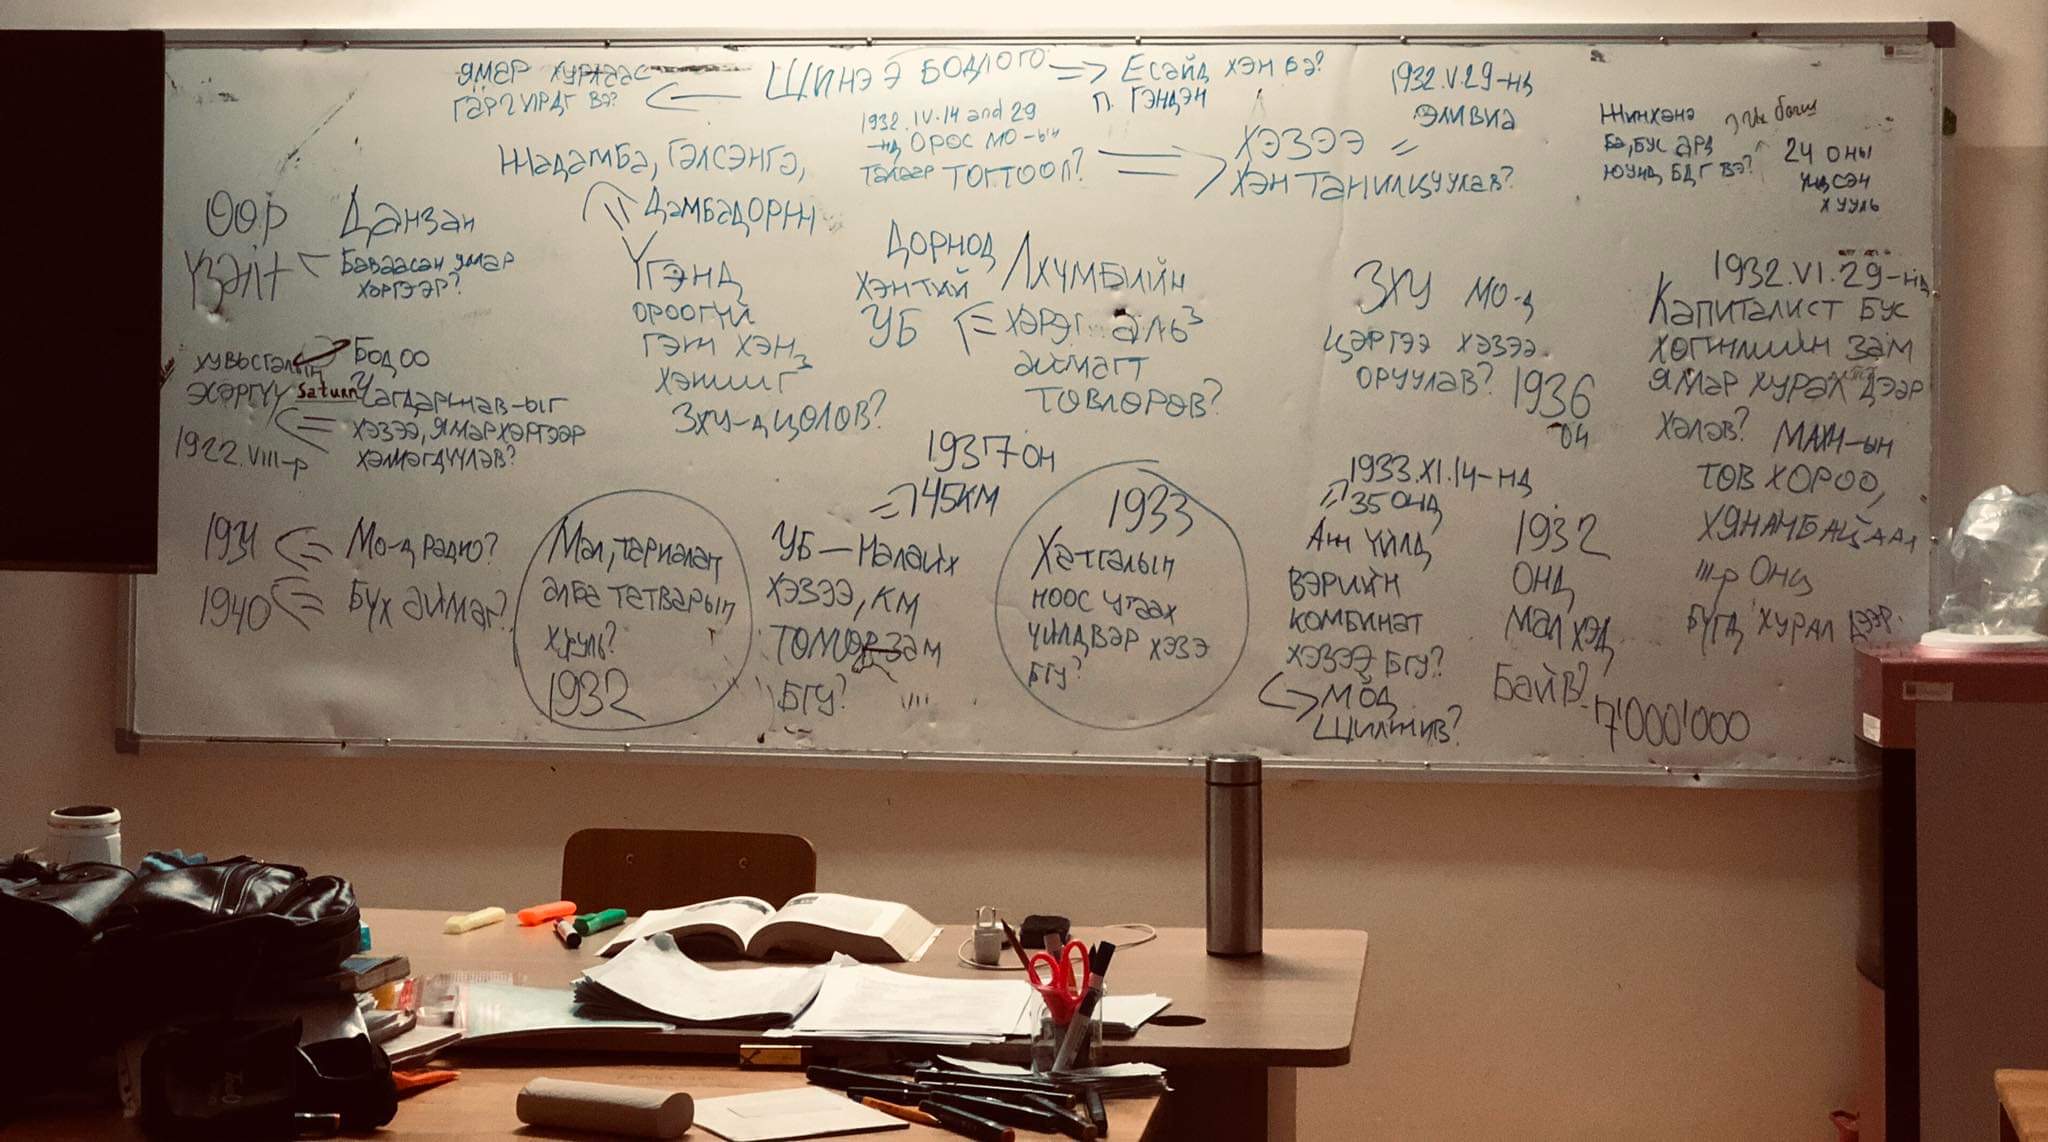 ЯМАР ХУРЛААС
ГАРГУУЛДГ ВЭ?
ШИНЭ Э БОДЛОГО
1932.IV.14 and 29
-нд ОРОС МО-ын
талаар ТОГТООЛ?
Есайд хэн бэ?
П. ГЭНДЭН
1932.V.29-нд
ЭЛИВИА
ХЭЗЭЭ =
ХЭН ТАНИЛЦУУЛАВ?
Жинхэнэ
ба, БУС АРД
ЮУНД БДГ ВЭ?
Их багш
24 оны
ҮНДСЭН
ХУУЛЬ
Жадамба, Гэлсэнгэ,
Дамбадорж
Өөр
Үзэлт
Данзан
Баваасан ямар
хэргээр?
Үгэнд
ороогүй
гэж хэн 3
хэнийг
ЗХУ-д цөлөв?
ДОРНОД
ХЭНТИЙ
УБ
Лхүмбийн
хэрэг аль 3
аймагт
төвлөрөв?
ЗХУ МО-д
цэргээ хэзээ
оруулав? 1936
04
1932.VI.29-нд
Капиталист бус
хөгжлийн зам
ямар хурал дээр
хэлэв? МАХН-ын
төв хороо,
ХЯНАН БАЙЦААЛ
III-р Онц
Бүгд хурал дээр.
хувьсгалын
эсэргүү Saturn
1922.VIII-р
Бодоо
Чагдаржав-ыг
хэзээ, ямар хэргээр
хэлмэгдүүлэв?
1931
Мо-д радио?
1940
Бүх аймаг?
Мал, тариалан
алба татварын
хууль?
1932
1937 он
45км
УБ – Налайх
хэзээ, км
төмөр зам
БГУ?
1933
Хатгалын
ноос угаах
үйлдвэр хэзээ
БГУ?
1933.XI.14-нд
35 онд
Аж үйлд
вэрийн
комбинат
хэзээ БГУ?
Мод
Шилжив?
1932
онд
мал хэд
байв?
7'000'000